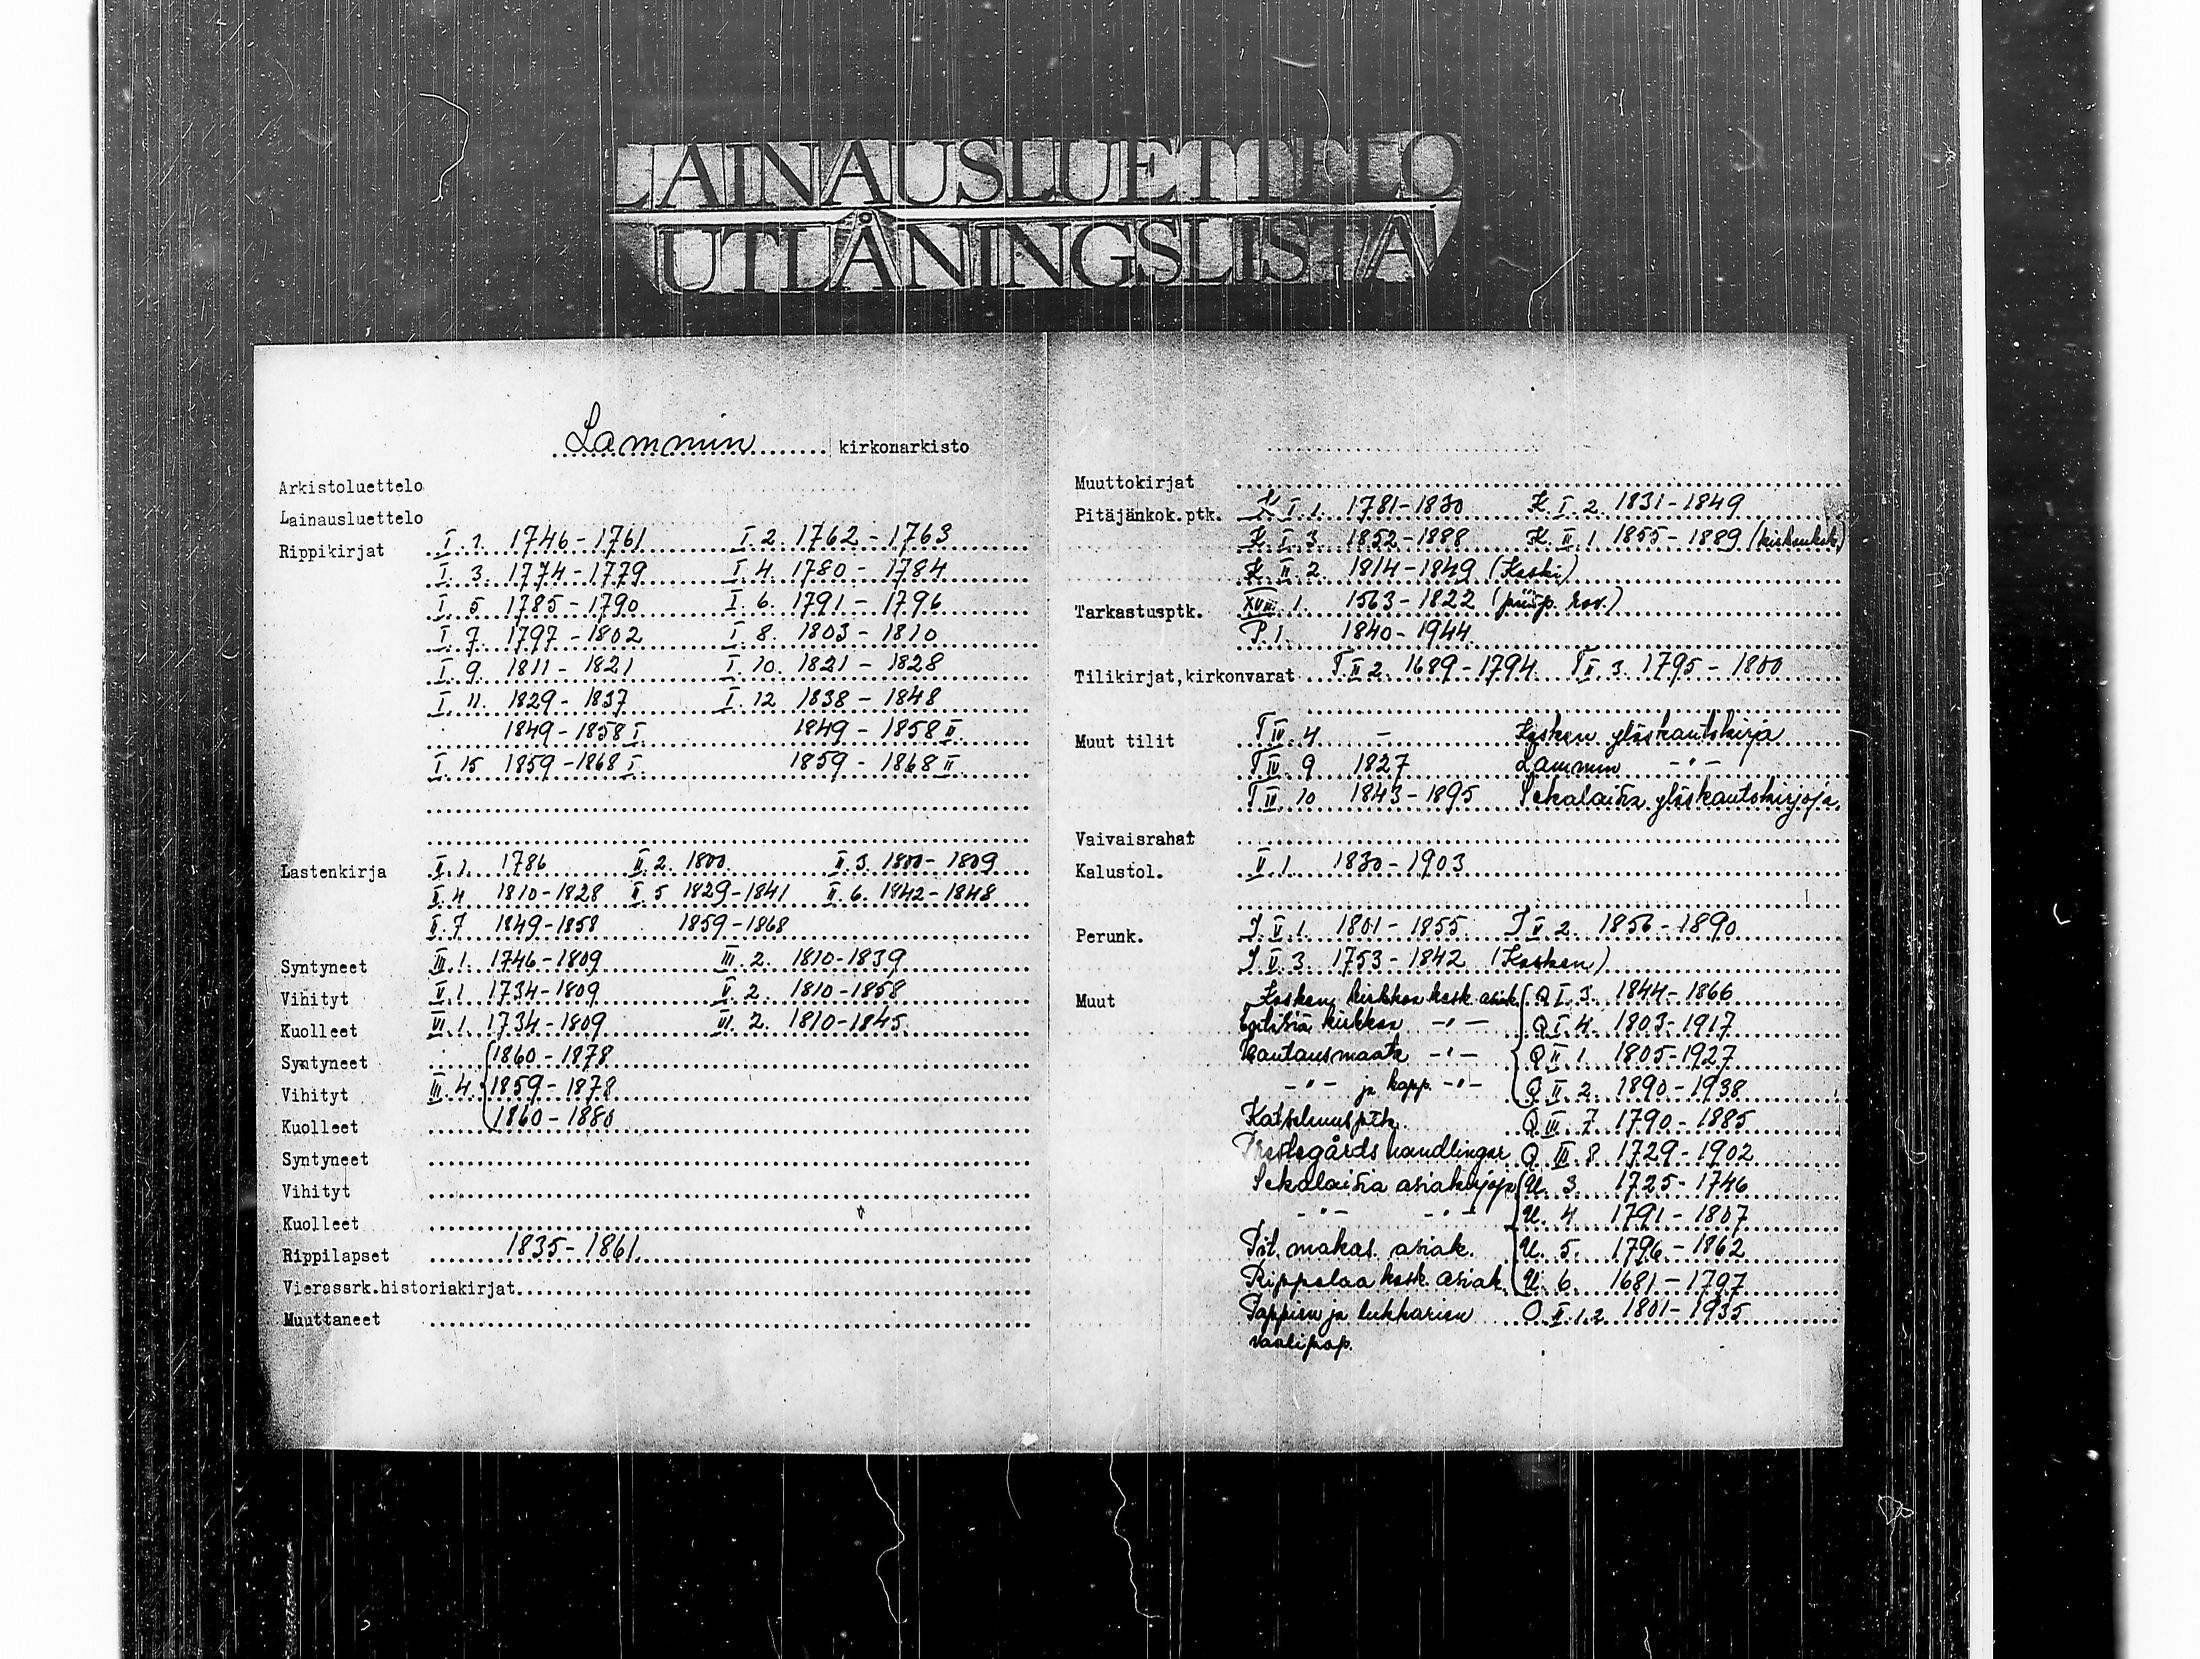 LAINAUSLUETTELO
UTLÅNINGSLISTA
Lammin kirkonarkisto
Arkistoluettelo
Lainausluettelo
Rippikirjat I.1. 1746-1761 I.2. 1762-1763
I.3. 1774-1779 I.4. 1780-1784
I.5 1785-1790 I.6. 1791-1796
I.7. 1797-1802 I.8. 1803-1810
I.9. 1811-1821 I.10. 1821-1828
I.11. 1829-1837 I.12 1838-1848
1849-1858 I 1849-1858 II
I.15 1859-1868 I 1859-1868 II
Lastenkirja II.1. 1786 II.2. 1800 II.3. 1800-1809
II.4 1810-1828 II.5 1829-1841 II.6. 1842-1848
II.7 1849-1858 1859-1868
Syntyneet III.1. 1746-1809 III.2. 1810-1839
Vihityt V.1 1734-1809 V.2. 1810-1858
Kuolleet VI.1. 1734-1809 VI.2. 1810-1845
Syntyneet 1860-1878
Vihityt III.4 1859-1878
Kuolleet 1860-1880
Syntyneet
Vihityt
Kuolleet
Rippilapset 1835-1861
Vierassrk.historiakirjat
Muuttaneet
Muuttokirjat
Pitäjänkok.ptk. K.I.1. 1781-1830 K.I.2. 1831-1849
K.I.3. 1852-1888 K.II.1 1855-1889
K.II.2. 1814-1849 (Koski)
Tarkastusptk. XVIII.1. 1563-1822
P.1. 1840-1944
Tilikirjat,kirkonvarat T.II.2. 1689-1794 T.II.3. 1795-1800
Muut tilit T IV.4 - Kosken yløskantokirja
T IV.9 1827 Lammin -"-
T IV.10 1843-1895 Sekalaisia yløskantokirjoja
Vaivaisrahat
Kalustol. II.1. 1830-1903
Perunk. J.II.1. 1801-1855 J II 2. 1856-1890
J.II.3. 1753-1842 (Kosken)
Muut Kosken kirkkoa kosk. asiak. Q I.3. 1844-1866
kirkkoa -"- Q I.4. 1803-1917
hautausmaata -"- Q II.1. 1805-1927
-"- ja kapp. -"- Q II.2. 1890-1938
Katselmusptk. Q III.7 1790-1885
Prestegårds handlingar Q III.8 1729-1902
Sekalaisia asiakirjoja U.3. 1725-1746
-"- -"- U.4 1791-1807
Pit. makas. asiak. U.5. 1796-1862
kosk. asiak. U.6. 1681-1797
Pappien ja lukkarien O.II.1.2 1801-1935
vaalipap.